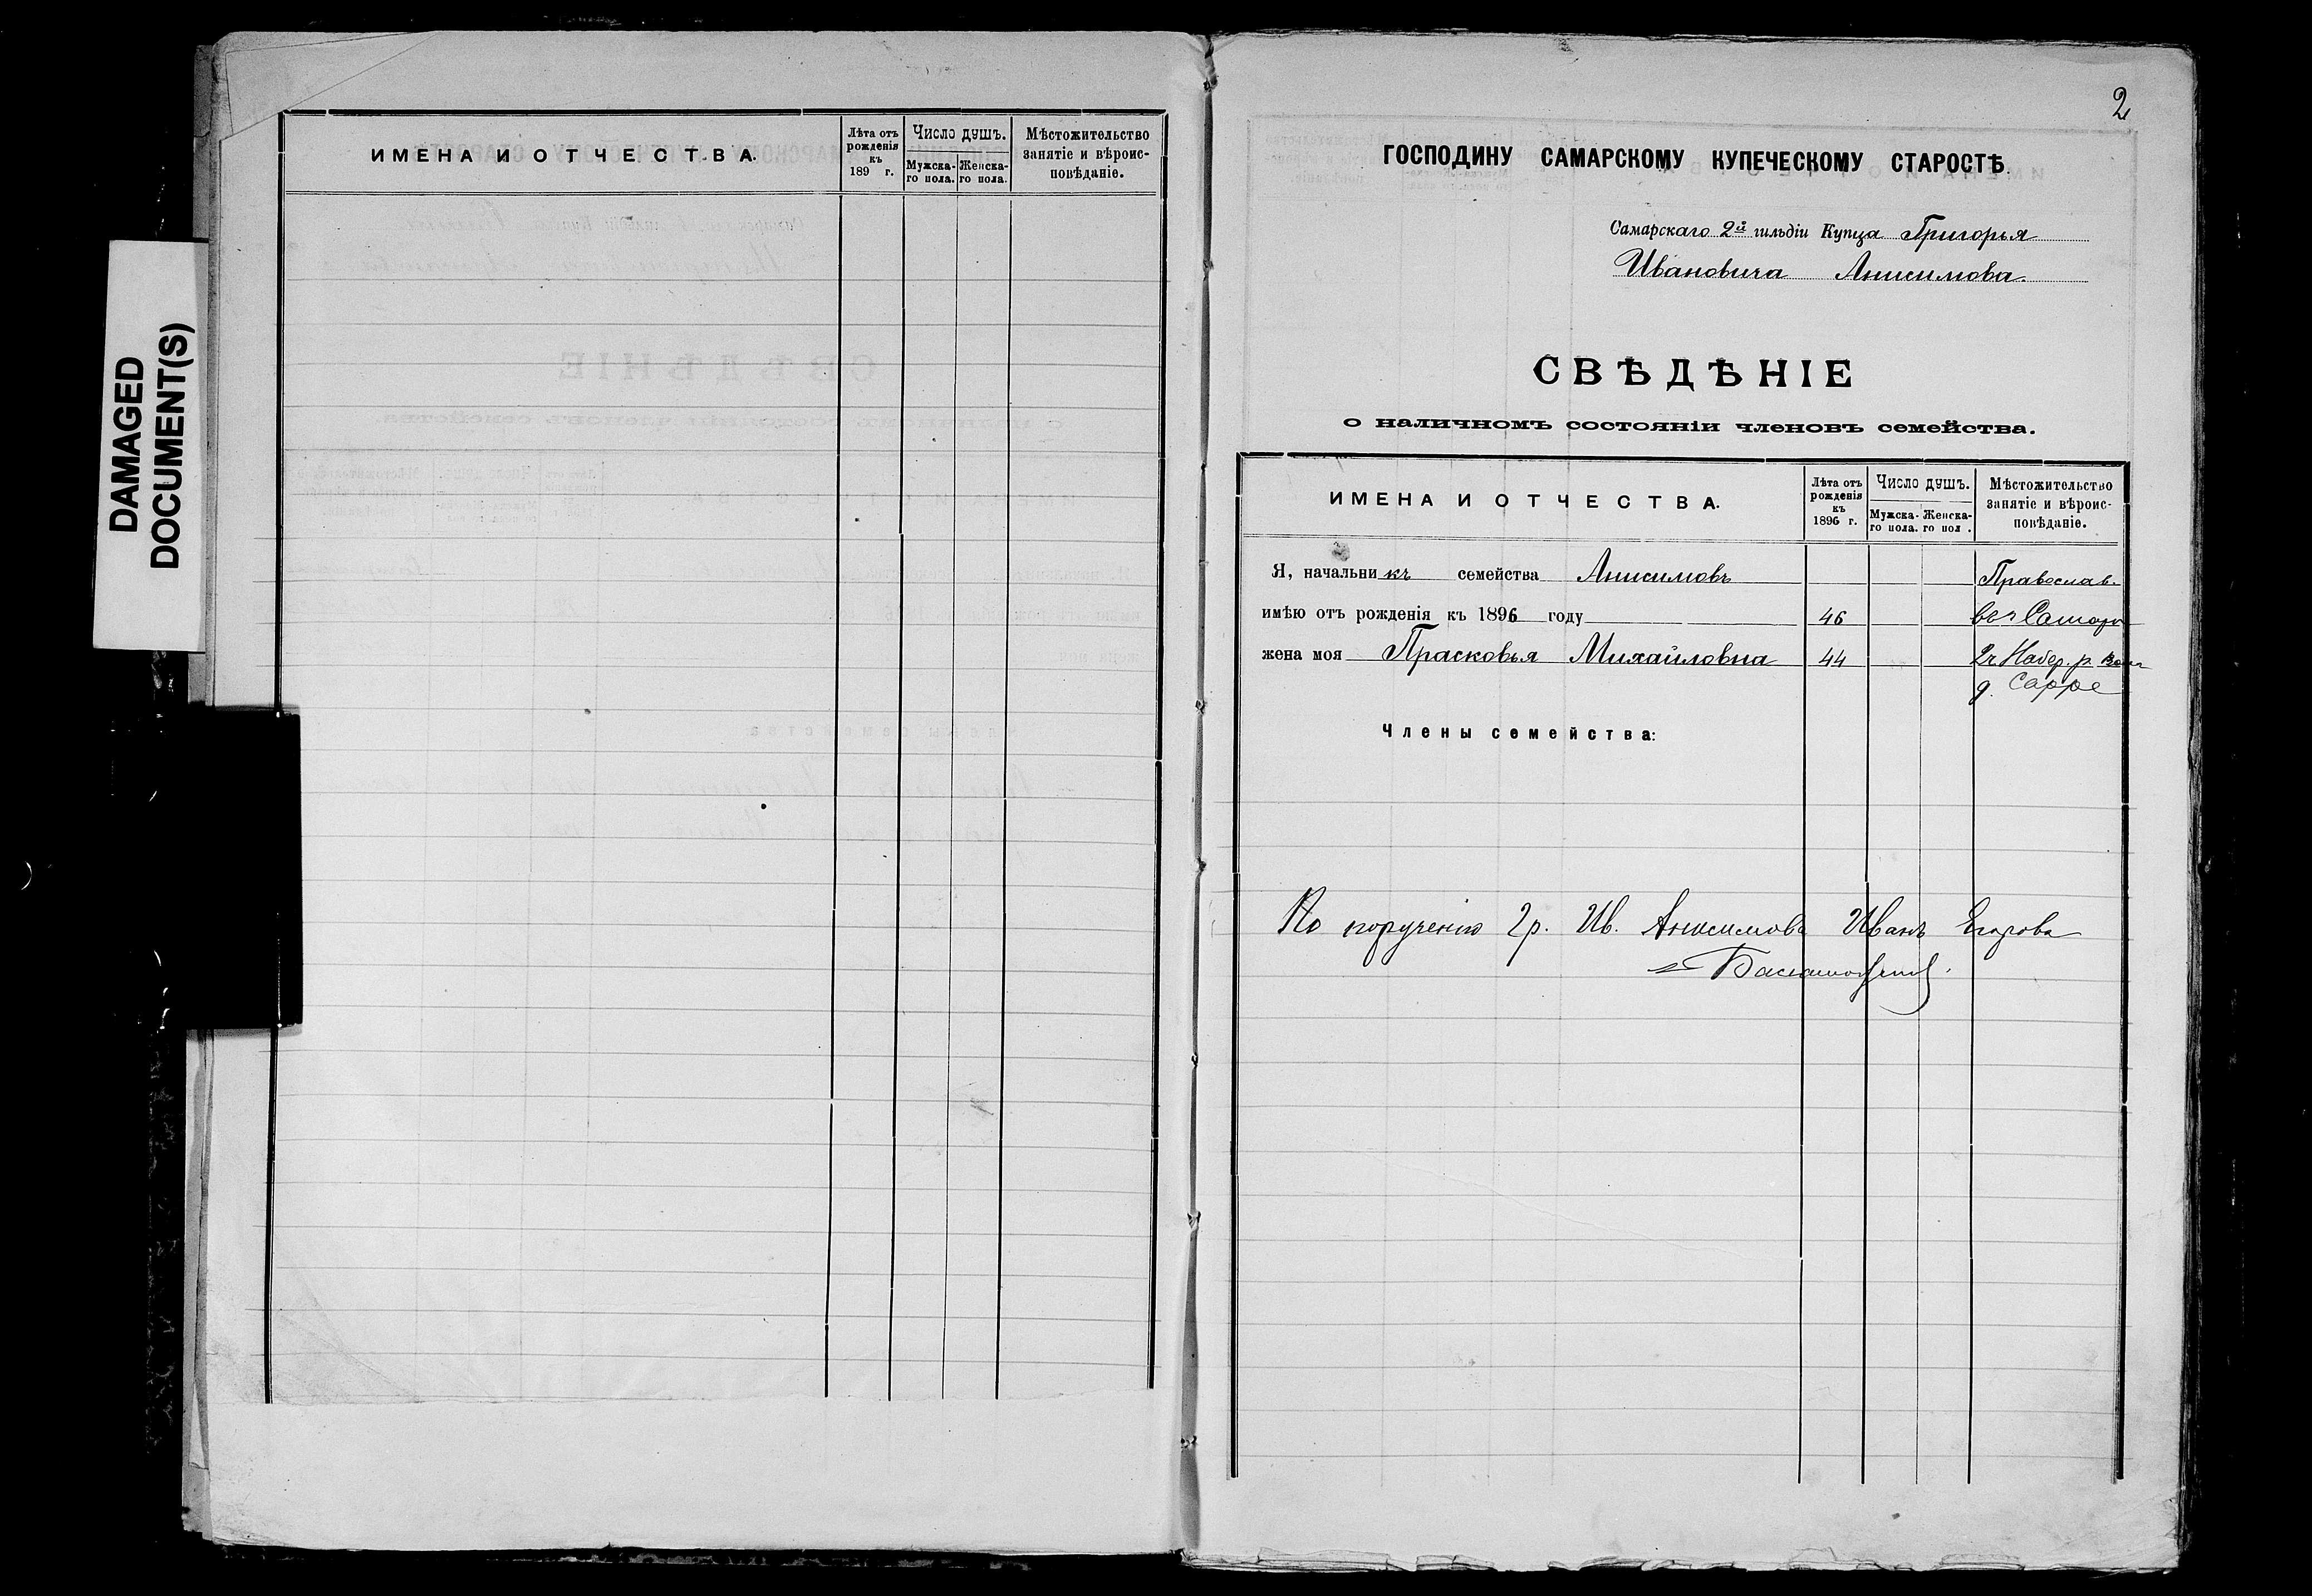 DAMAGED
DOCUMENT(S)
ИМЕНА И ОТЧЕСТВА.
Лѣта отъ рожденія къ 189 г.
Число душъ.
Мужска-го пола.
Женска-го пола.
Мѣстожительство занятіе и вѣроис-повѣданіе.
2
ГОСПОДИНУ САМАРСКОМУ КУПЕЧЕСКОМУ СТАРОСТѢ.
Самарскаго 2й гильдіи Купца Григорья
Ивановича Анисимова.
СВѢДѢНІЕ
о наличномъ состояніи членовъ семейства.
ИМЕНА И ОТЧЕСТВА.
Лѣта отъ рожденія къ 1896 г.
Число душъ.
Мужска-го пола.
Женска-го пол .
Мѣстожительство занятіе и вѣроис-повѣданіе.
Я, начальникъ семейства Анисимовъ Православ.
имѣю отъ рожденія къ 1896 году 46
жена моя Прасковья Михайловна 44 Набер. р.
д. Сарре
Члены семейства:
По порученію Гр. Ив. Анисимова Иванъ Егорова